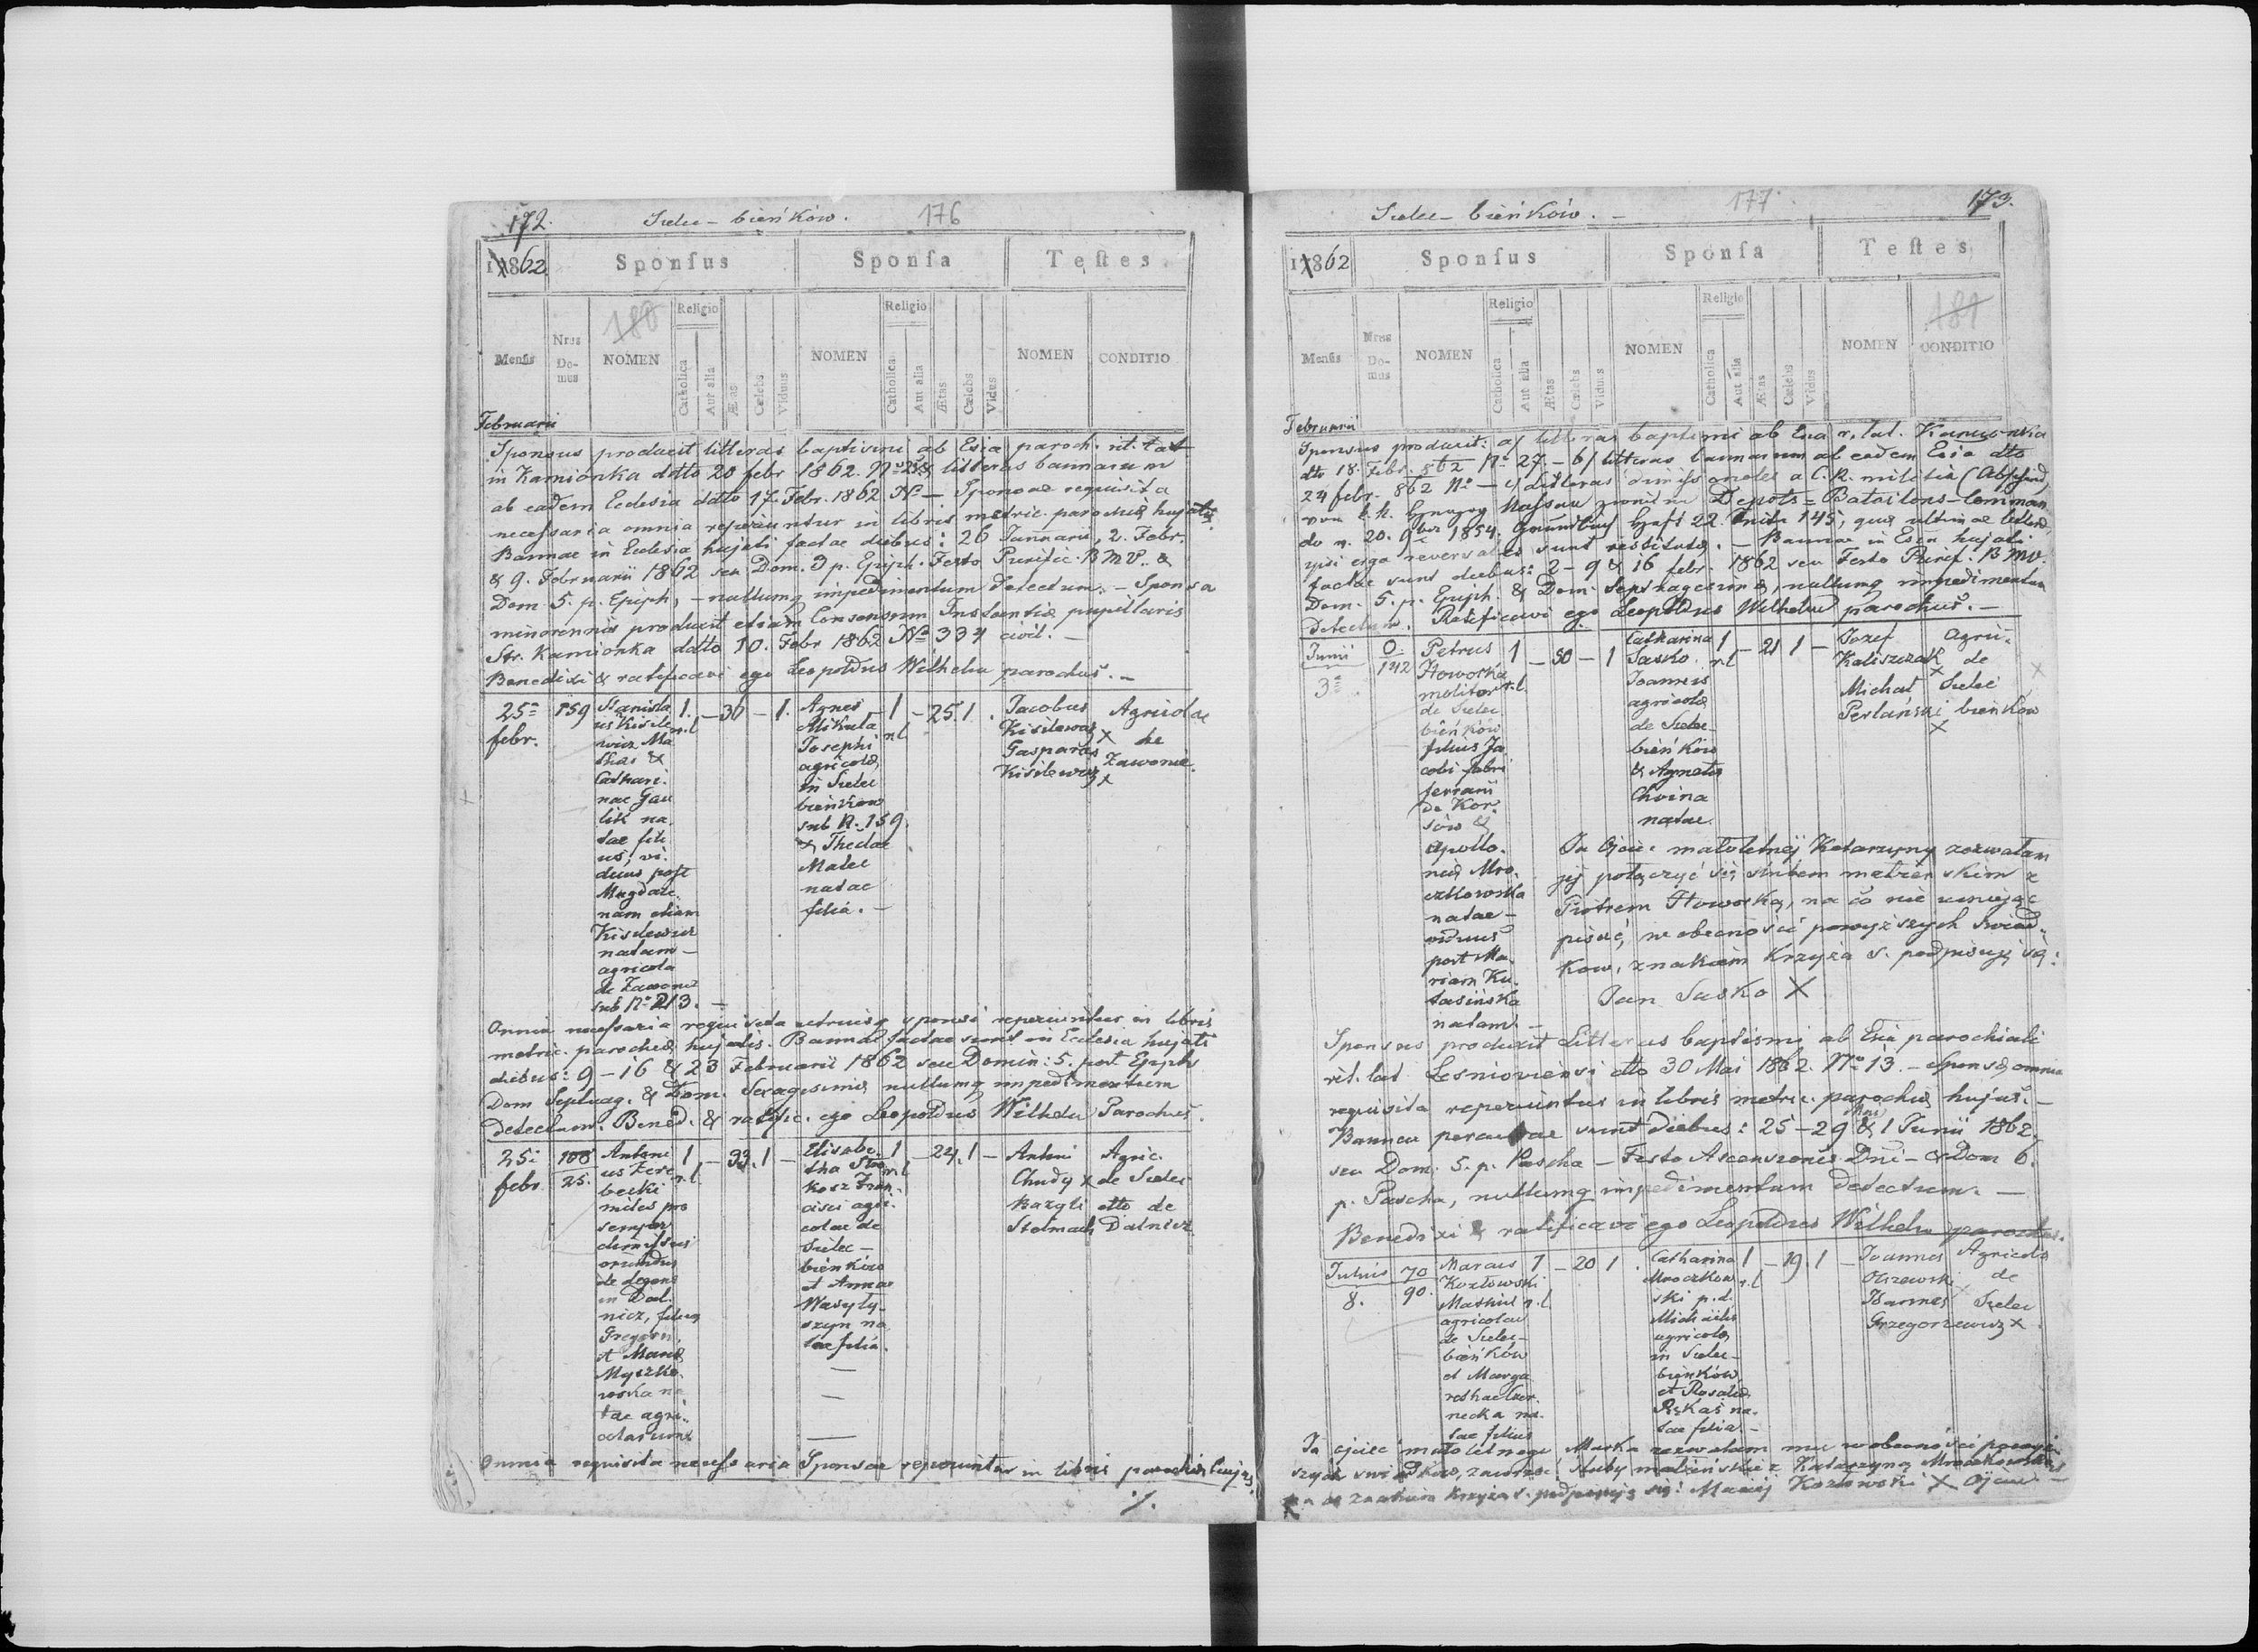 172.
Sielec - bieńków.
176
1862
Sponsus
Sponsa
Testes
Mensis
Nrus Domus
180
NOMEN
Religio
Catholica
Aut alia
Ætas
Cælebs
Viduus
NOMEN
Religio
Catholica
Aut alia
Ætas
Cælebs
Vidua
NOMEN
CONDITIO
Februarii
Sponsus produxit litteras baptismi ab Ecsia paroch. rit. lat
in Kamionka ddto 20 febr 1862. & litteras bannorum
ab eadem Eclesia ddto 17. Febr. 1862 No — Sponsae requisita
necessaria omnia reperiuntur in libris metric. parochiæ hujatis
Bannae in Eclesia hujati factae diebus: 26 Januarii, 2. Febr.
& 9. Februarii 1862 seu Dom. 3 p. Epiph. Festo Purific. B M V. &
Dom. 5. p. Epiph, — nullumq impedimentum detectum. — Sponsa
minorennis produxit etiam Consensum Instantiæ pupillaris
Str. Kamionka ddto 10. Febr 1862 No 334 civil. —
Benedixi & ratificavi ego Leopoldus Wilhelm parochus. —
25a
febr.
159
Stanisla
us Kisile
wicz Ma
thiæ &
Cathari
nae Gau
lik na
tae fili
us, vi
duus post
Magdale
nam etiam
Kisilewicz
natam —
agricola
de Zawonie
sub No 213. —
1.
r.l
— 30 — 1.
Agnes
Mikula
Josephi
agricolæ
in Sielec
bieńków
sub N. 159
& Theclae
Malec
natae
filia. —
1
r.l
— 25. 1.
Jacobus
Kisilewicz x
Gasparus
Kisilewicz x
Agricolae
de
Zawonie.
Omnia necessaria requisita utriusq sponsi reperiuntur in libris
metric. parochiæ hujatis. Bannae factae sunt in Eclesia hujati
diebus: 9 – 16 & 23 Februarii 1862 seu Domin: 5. post Epiph
Dom Septuag. & Dom. Sexagesimæ nullumq impedimentum
detectum. Bened. & ratific. ego Leopoldus Wilhelm Parochus.
25a
febr
108
25.
Antoni
us
becki
miles pro
semper
dimissus
oriundus
de
in Dal
nicz, filius
Gregorii
et Mariæ
Myszko
wska na
tae agri
colarum
1
r.l.
— 33. 1 —
Elisabe
tha
kosz Fran
cisci agri
colae de
Sielec —
bieńków
et Annae
Wasyly
szyn na
tae filia.
1
r.l
— 24. 1 —
Antoni
Chudy x
Bazyli
Stelmach
Agric.
de Sielec
dto de
Dalnicz
Omnia requisita necessaria Sponsae reperiuntur in libris parochiæ hujus
./.
Sielec - bieńków. —
177.
173.
1862
Sponsus
Sponsa
Testes
Mensis
Nrus Domus
NOMEN
Religio
Catholica
Aut alia
Ætas
Cælebs
Viduus
NOMEN
Religio
Catholica
Aut alia
Ætas
Cælebs
Vidua
NOMEN
181
CONDITIO
Februarii
Sponsus produxit: a/ litteras baptismi ab Ecsia r. lat. Kamionka
dto 18. Febr. 862 No 27. — b/ litteras bannorum ab eadem Ecsia dto
24 febr. 862 No — c/ litteras dimissionales a C.R. militia (Abschied)
von k.k. Nassau Depots-Batailons-Comman
do v. 20. 9ber 1854. Grundbuch Heft 22. Seite 145, quæ ultimae litteræ
ipsi erga reversales sunt restitutæ. — Bannae in Ecsia hujati
factae sunt diebus: 2 – 9 & 16 febr. 1862 seu Festo Purif. B M V.
Dom. 5. p. Epiph. & Dom. Septuagesimæ, nullumq impedimentum
detectum. Ratificavi ego Leopoldus Wilhelm parochus. —
Junii
3a
0
142
Petrus
Howorka
molitor
de Sielec
bieńków
filius Ja
cobi fabri
ferrarii
de Kor
sów &
Apollo
niæ Mro
czkowska
natae —
viduus
post Ma
riam Ku
tasińska
natam. —
1
r.l.
— 50 — 1
Catharina
Sasko
Joannis
agricolæ
de Sielec
bieńków
& Agnetis
Chvina
natae.
1
r.l
— 21 1 —
Jozef
Kaliszczak x
Michał
Perlański x
Agric.
de
Sielec
bieńków
Ja Ojciec małoletniéj Katarzyny zezwalam
jéj połączyć się ślubem małżeńskim z
Piotrem Howorką, na co nie umiejąc
pisać, w obecności powyższych świad
ków, znakiem krzyża s. podpisuję się:
Jan Sasko X
Sponsus produxit Litteras baptismi ab Ecsia parochiali
rit. lat Lesnioviensi dto 30 Mai 1862. No 13. — Sponsæ omnia
requisita reperiuntur in libris metric. parochiæ hujus. —
Bannae peractae sunt diebus: 25 – 29 Mai & 1 Junii 1862,
seu Dom. 5. p. Pascha — Festo Ascensionis Dni — & Dom 6.
p. Pascha, nullumq impedimentum detectum. —
Benedixi & ratificavi ego Leopoldus Wilhelm parochus.
Julius
8.
70
90.
Marcus
Kozłowski
Mathiæ
agricolae
de Sielec
bieńków
et Marga
rethae Czer
necka na
tae filius
1
r.l
— 20 1.
Catharina
Mroczkow
ski p.d.
Michaelis
agricolæ
in Sielec
bieńków
et Rosaliæ
Rękas na
tae filia. —
1
r.l
— 19. 1 —
Joannes
Olszewski x
Joannes
Grzegorzewicz x
Agricolæ
de
Sielec
Ja ojciec małoletnego Marka zezwalam mu w obecności powyż
szych świadków, zawrzeć śluby małżeńskie z Katarzyną Mroczkowską
na co znakiem krzyża s. podpisuję się: Maciej Kozłowski X Ojciec —